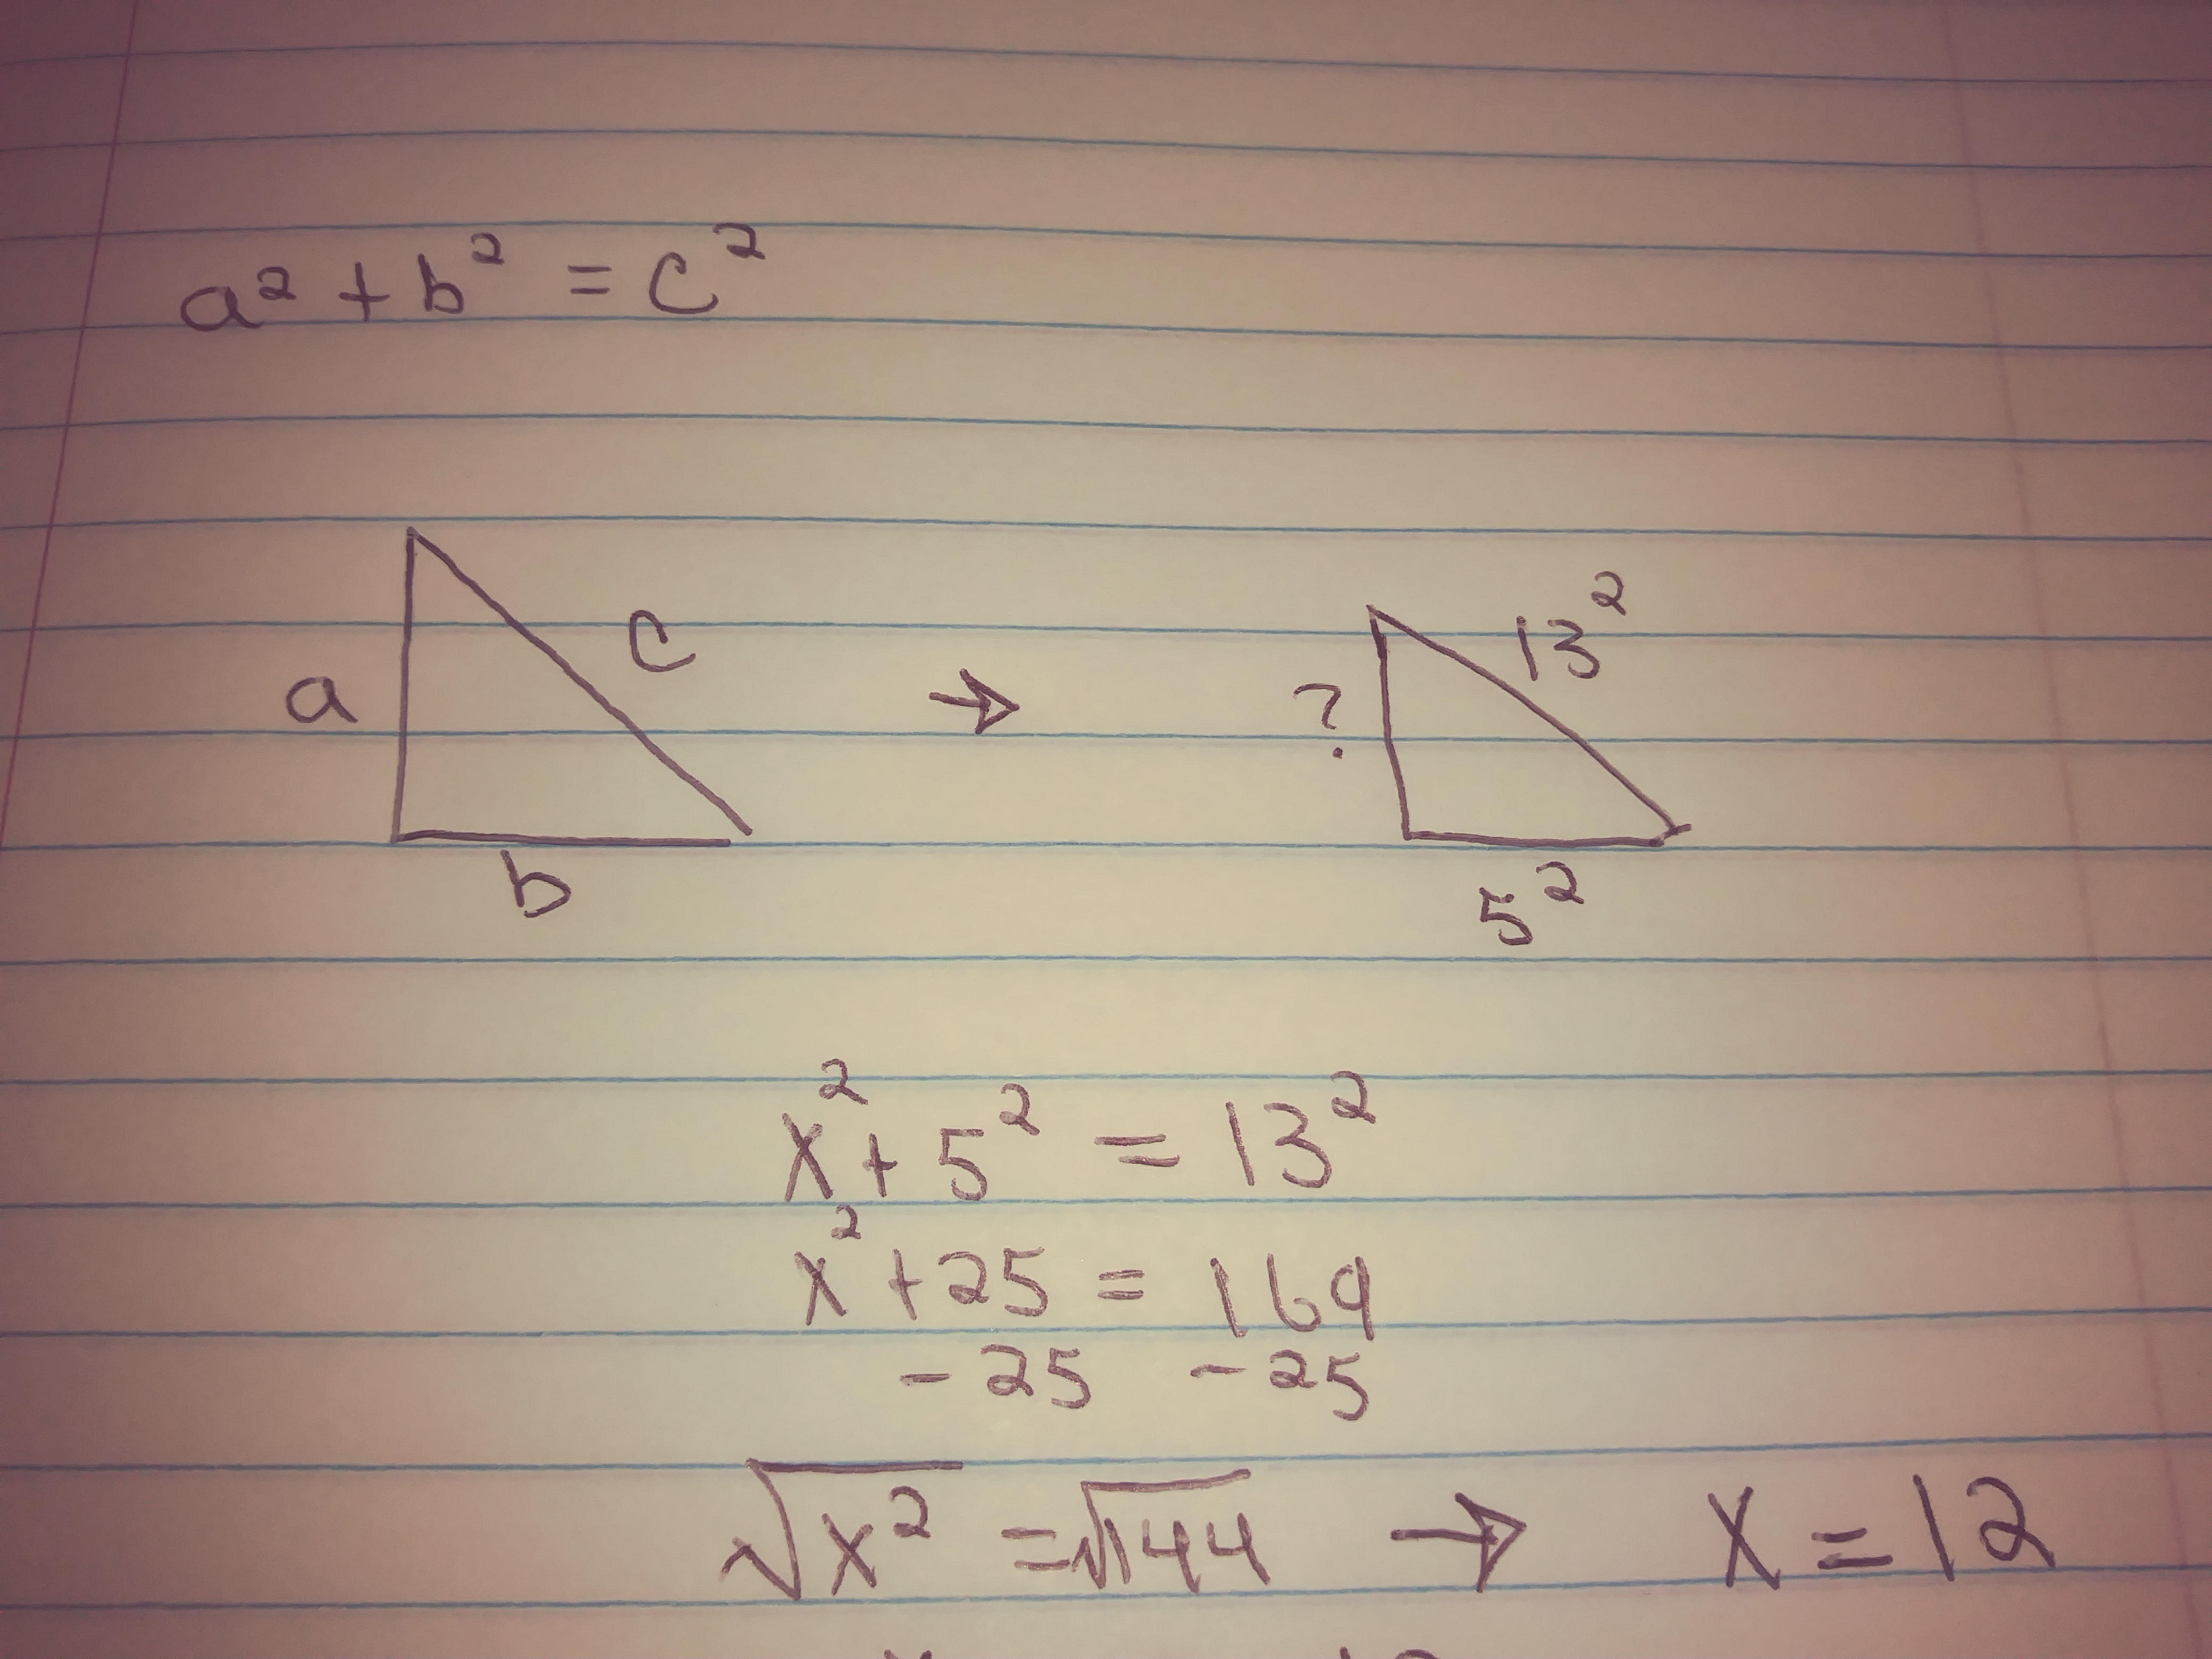 a² + b² = c²
a
c
b
→
?
13²
5²
x² + 5² = 13²
x² + 25 = 169
- 25 - 25
√x² = √144 → x = 12